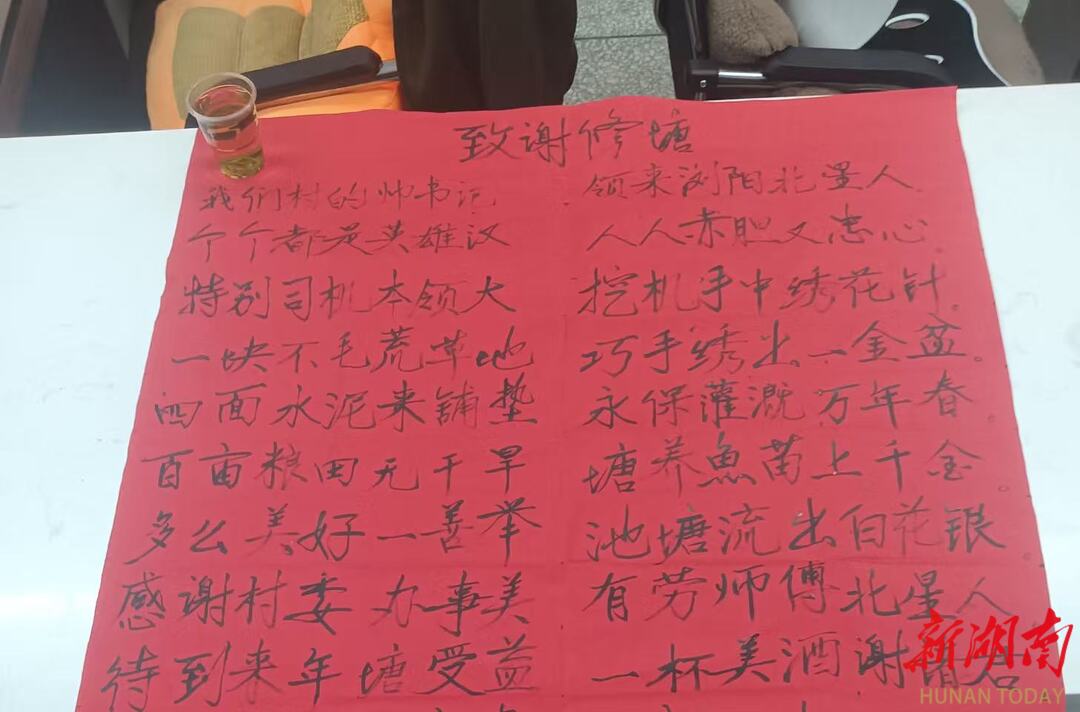 致谢修塘
我们村的帅书记 领来浏阳北星人。
个个都是英雄汉 人人赤胆又忠心。
特别司机本领大 挖机手中绣花针。
一块不毛荒草地 巧手绣出一金盆。
四面水泥来铺垫 永保灌溉万年春。
百亩粮田无干旱 塘养鱼苗上千金。
多么美好一善举 池塘流出白花银
感谢村委办事美 有劳师傅北星人
待到来年塘受益 一杯美酒谢
新湖南
HUNAN TODAY